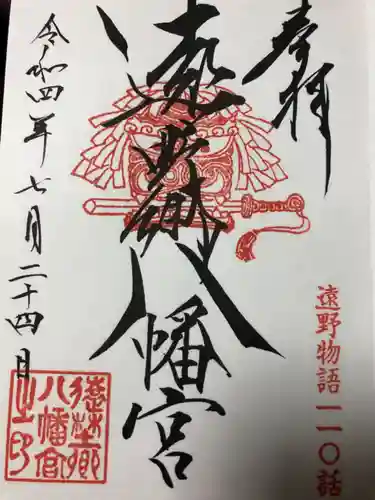 奉拝
遠野郷八幡宮
遠野物語一一〇話
令和四年七月二十四日
遠野郷
八幡宮
之印